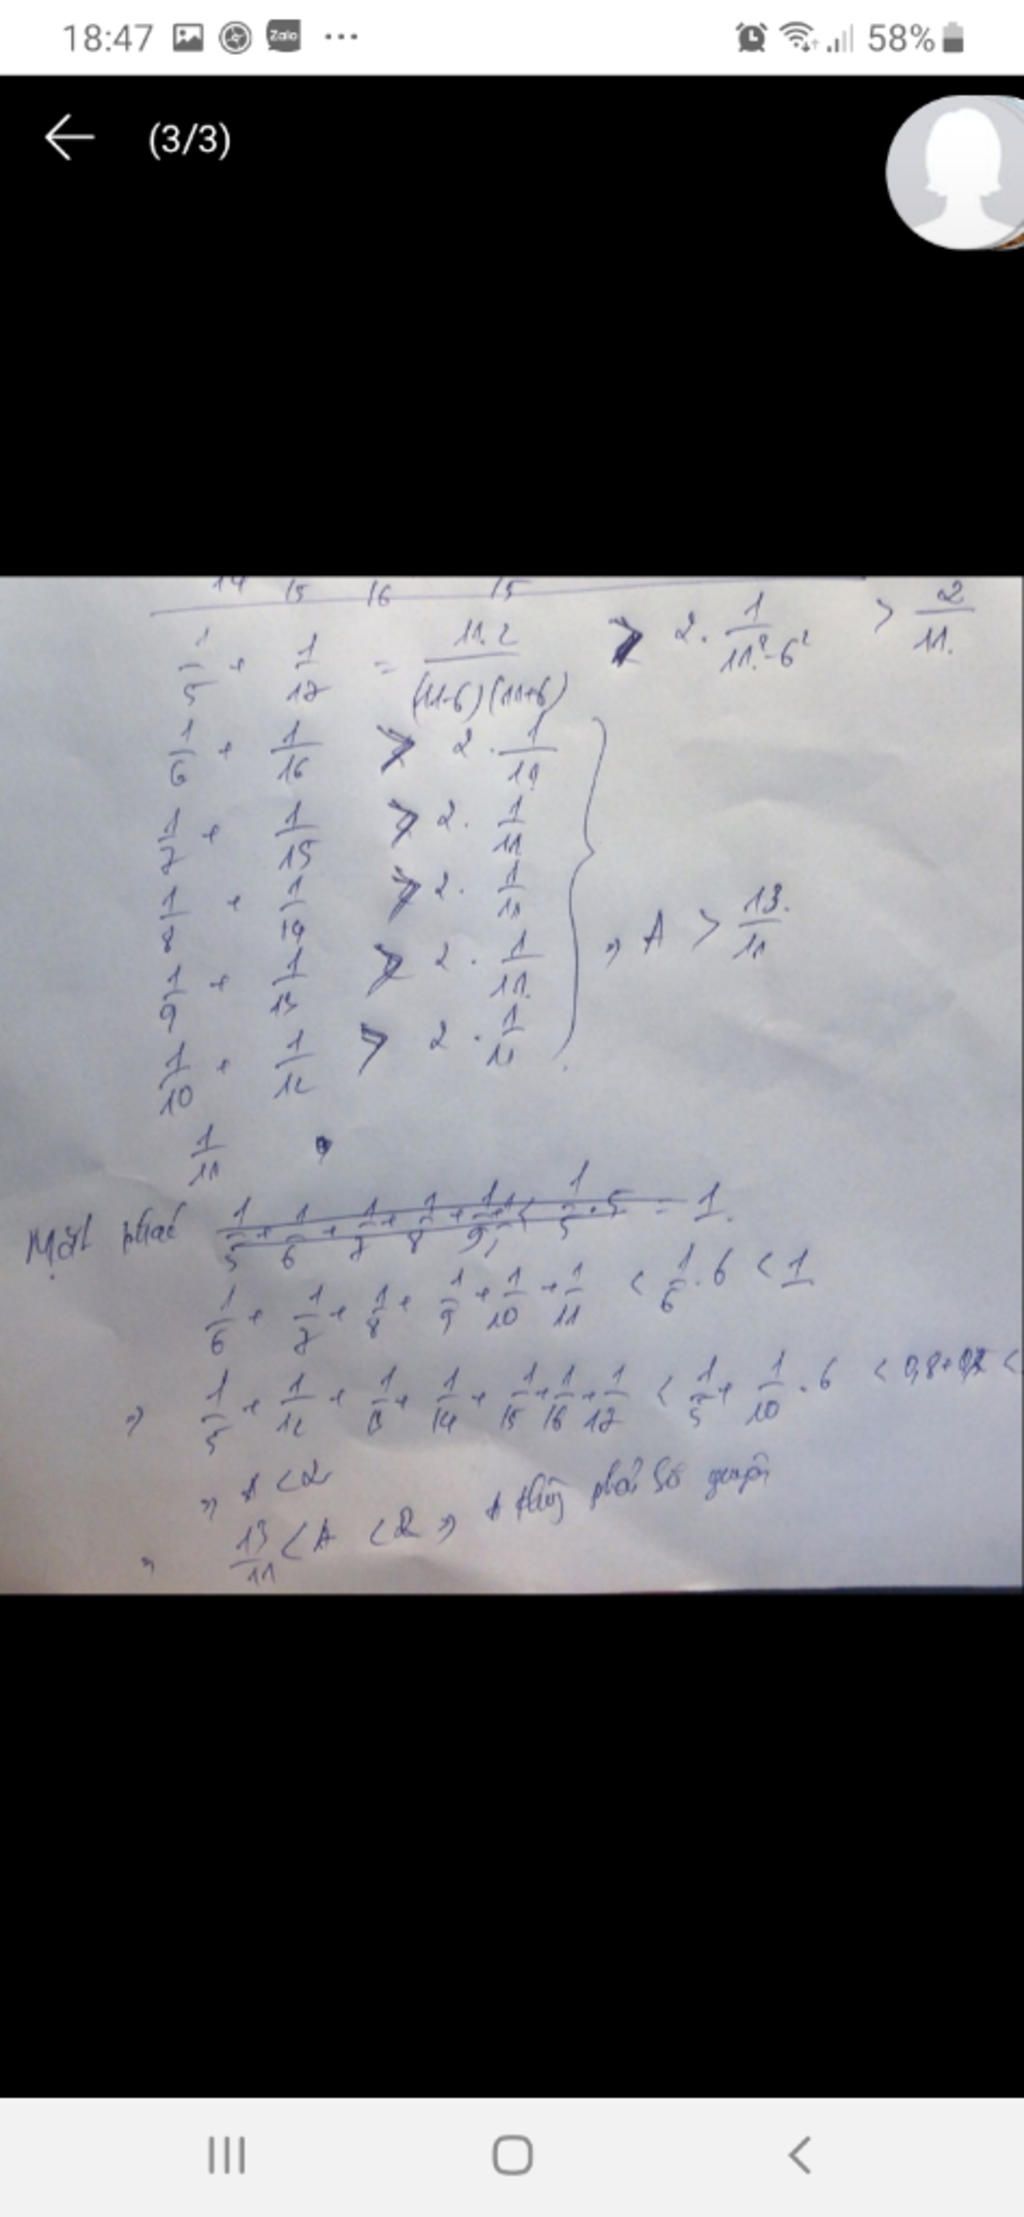 18:47 Zalo ... 58%
(3/3)
14 15 16 15
1/5 + 1/17 = 11.2/((11-6)(11+6)) > 2. 1/(11²-6²) > 2/11.
1/6 + 1/16 > 2. 1/11
1/7 + 1/15 > 2. 1/11
1/8 + 1/14 > 2. 1/11
1/9 + 1/13 > 2. 1/11.
1/10 + 1/12 > 2. 1/11
» A > 13/11
1/11
Mặt khác 1/5 + 1/6 + 1/7 + 1/8 + 1/9 < 1/5 . 5 = 1.
1/6 + 1/7 + 1/8 + 1/9 + 1/10 + 1/11 < 1/6 . 6 < 1
⇒ 1/5 + 1/12 + 1/13 + 1/14 + 1/15 + 1/16 + 1/17 < 1/5 + 1/10 . 6 < 0,8+0,2 <
» A < 2
» 13/11 < A < 2 » A không phải số nguyên